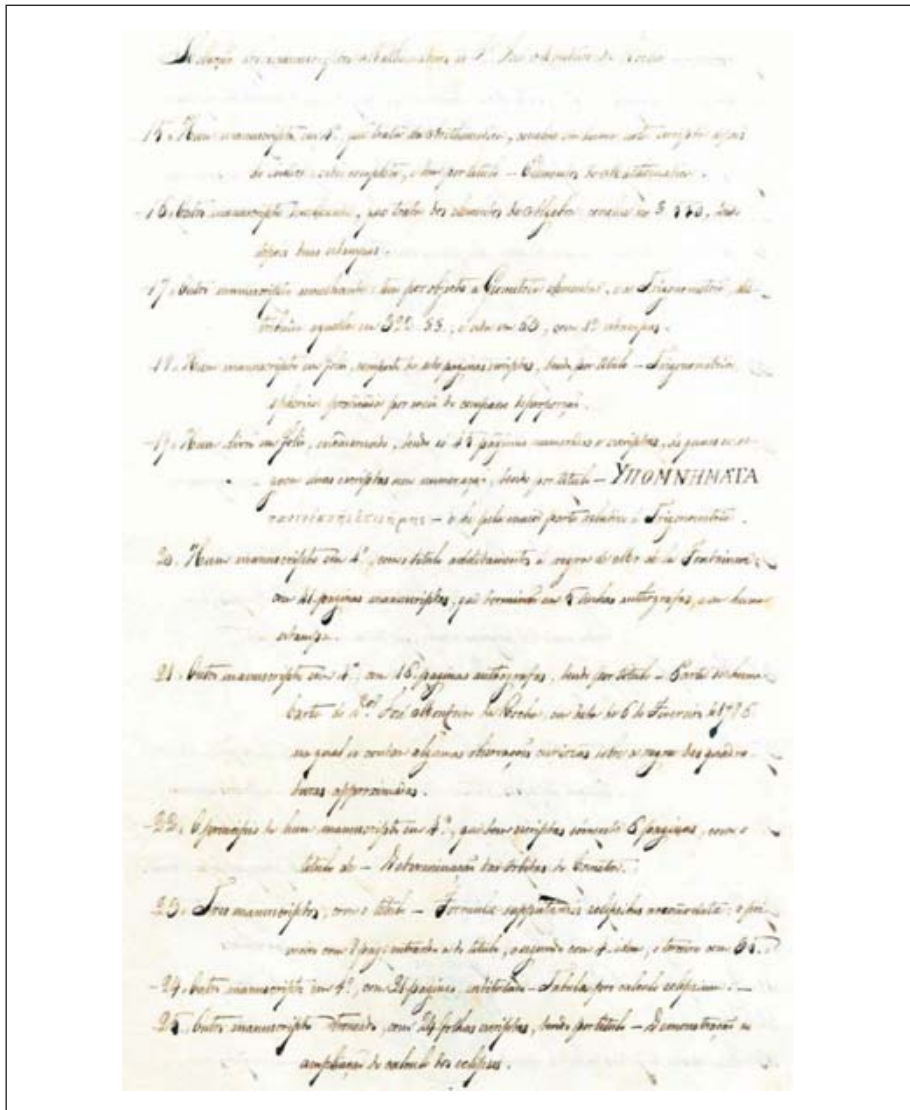 Relação dos manuscriptos Mathematicos de Jose Monteiro da Rocha
15. Hum manuscripto em 4º, que trata da Arithmetica,
de indice: esta completo, e tem por titulo – Elementos de Mathematica.
16. Outro manuscripto semelhante, que trata dos elementos de Algebra: conclue no § 333,
depois duas estampas.
17. Outro manuscripto semelhante: tem por objecto a Geometria elementar, e a Trigonometria,
aquella em 320 §§, e esta em 53, com 12 estampas.
18. Hum manuscripto em folio, composto de oito paginas escriptas, tendo por titulo – Trigonometria
spherica praticada por meio do compasso de proporção.
19. Hum livro em folio, encadernado, tendo só 45 paginas numeradas e escriptas, ás quaes se
seguem duas escriptas sem numeração, tendo por titulo – ΥΠΟΜΝΗΜΑΤΑ
– e he pela maior parte relativo á Trigonometria.
20. Hum manuscripto em 4º, com o titulo additamento á regra de Mr. de la Fontaine:
com 41 paginas manuscriptas, que terminão em 5 linhas autografas, e com huma
estampa.
21. Outro manuscripto em 4º, com 18 paginas autografas, tendo por titulo – Parte de huma
Carta do Dor José Monteiro da Rocha, em data de 6 de Fevereiro de 1796
na qual se contem algumas observações curiozas sobre a regra das quadra-
turas approximadas.
22. O principio de hum manuscripto em 4º, que tem escriptas somente 6 paginas, com o
titulo de – Determinação das orbitas dos Cometas.
23. Tres manuscriptos, com o titulo – Formulæ supputandis eclipsibus : o pri-
meiro com 7 pag. entrando a do titulo, o segundo com 4 idem, o terceiro com 35.
24. Outro manuscripto em 4º, com 21 paginas intitulado – Tabulæ pro calculo eclipsium. –
25. Outro manuscripto truncado, com 24 folhas escriptas, tendo por titulo – Demonstração e
ampliação do calculo dos eclipses.